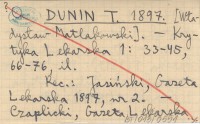 DUNIN T. 1897. [Wła-
dysław Matlakowski]. — Kry-
tyka Lekarska 1: 33-45,
66-76, il.
Rec.: Jasiński, Gazeta
Lekarska 1897, nr 2. —
Czaplicki, Gazeta Lekarska